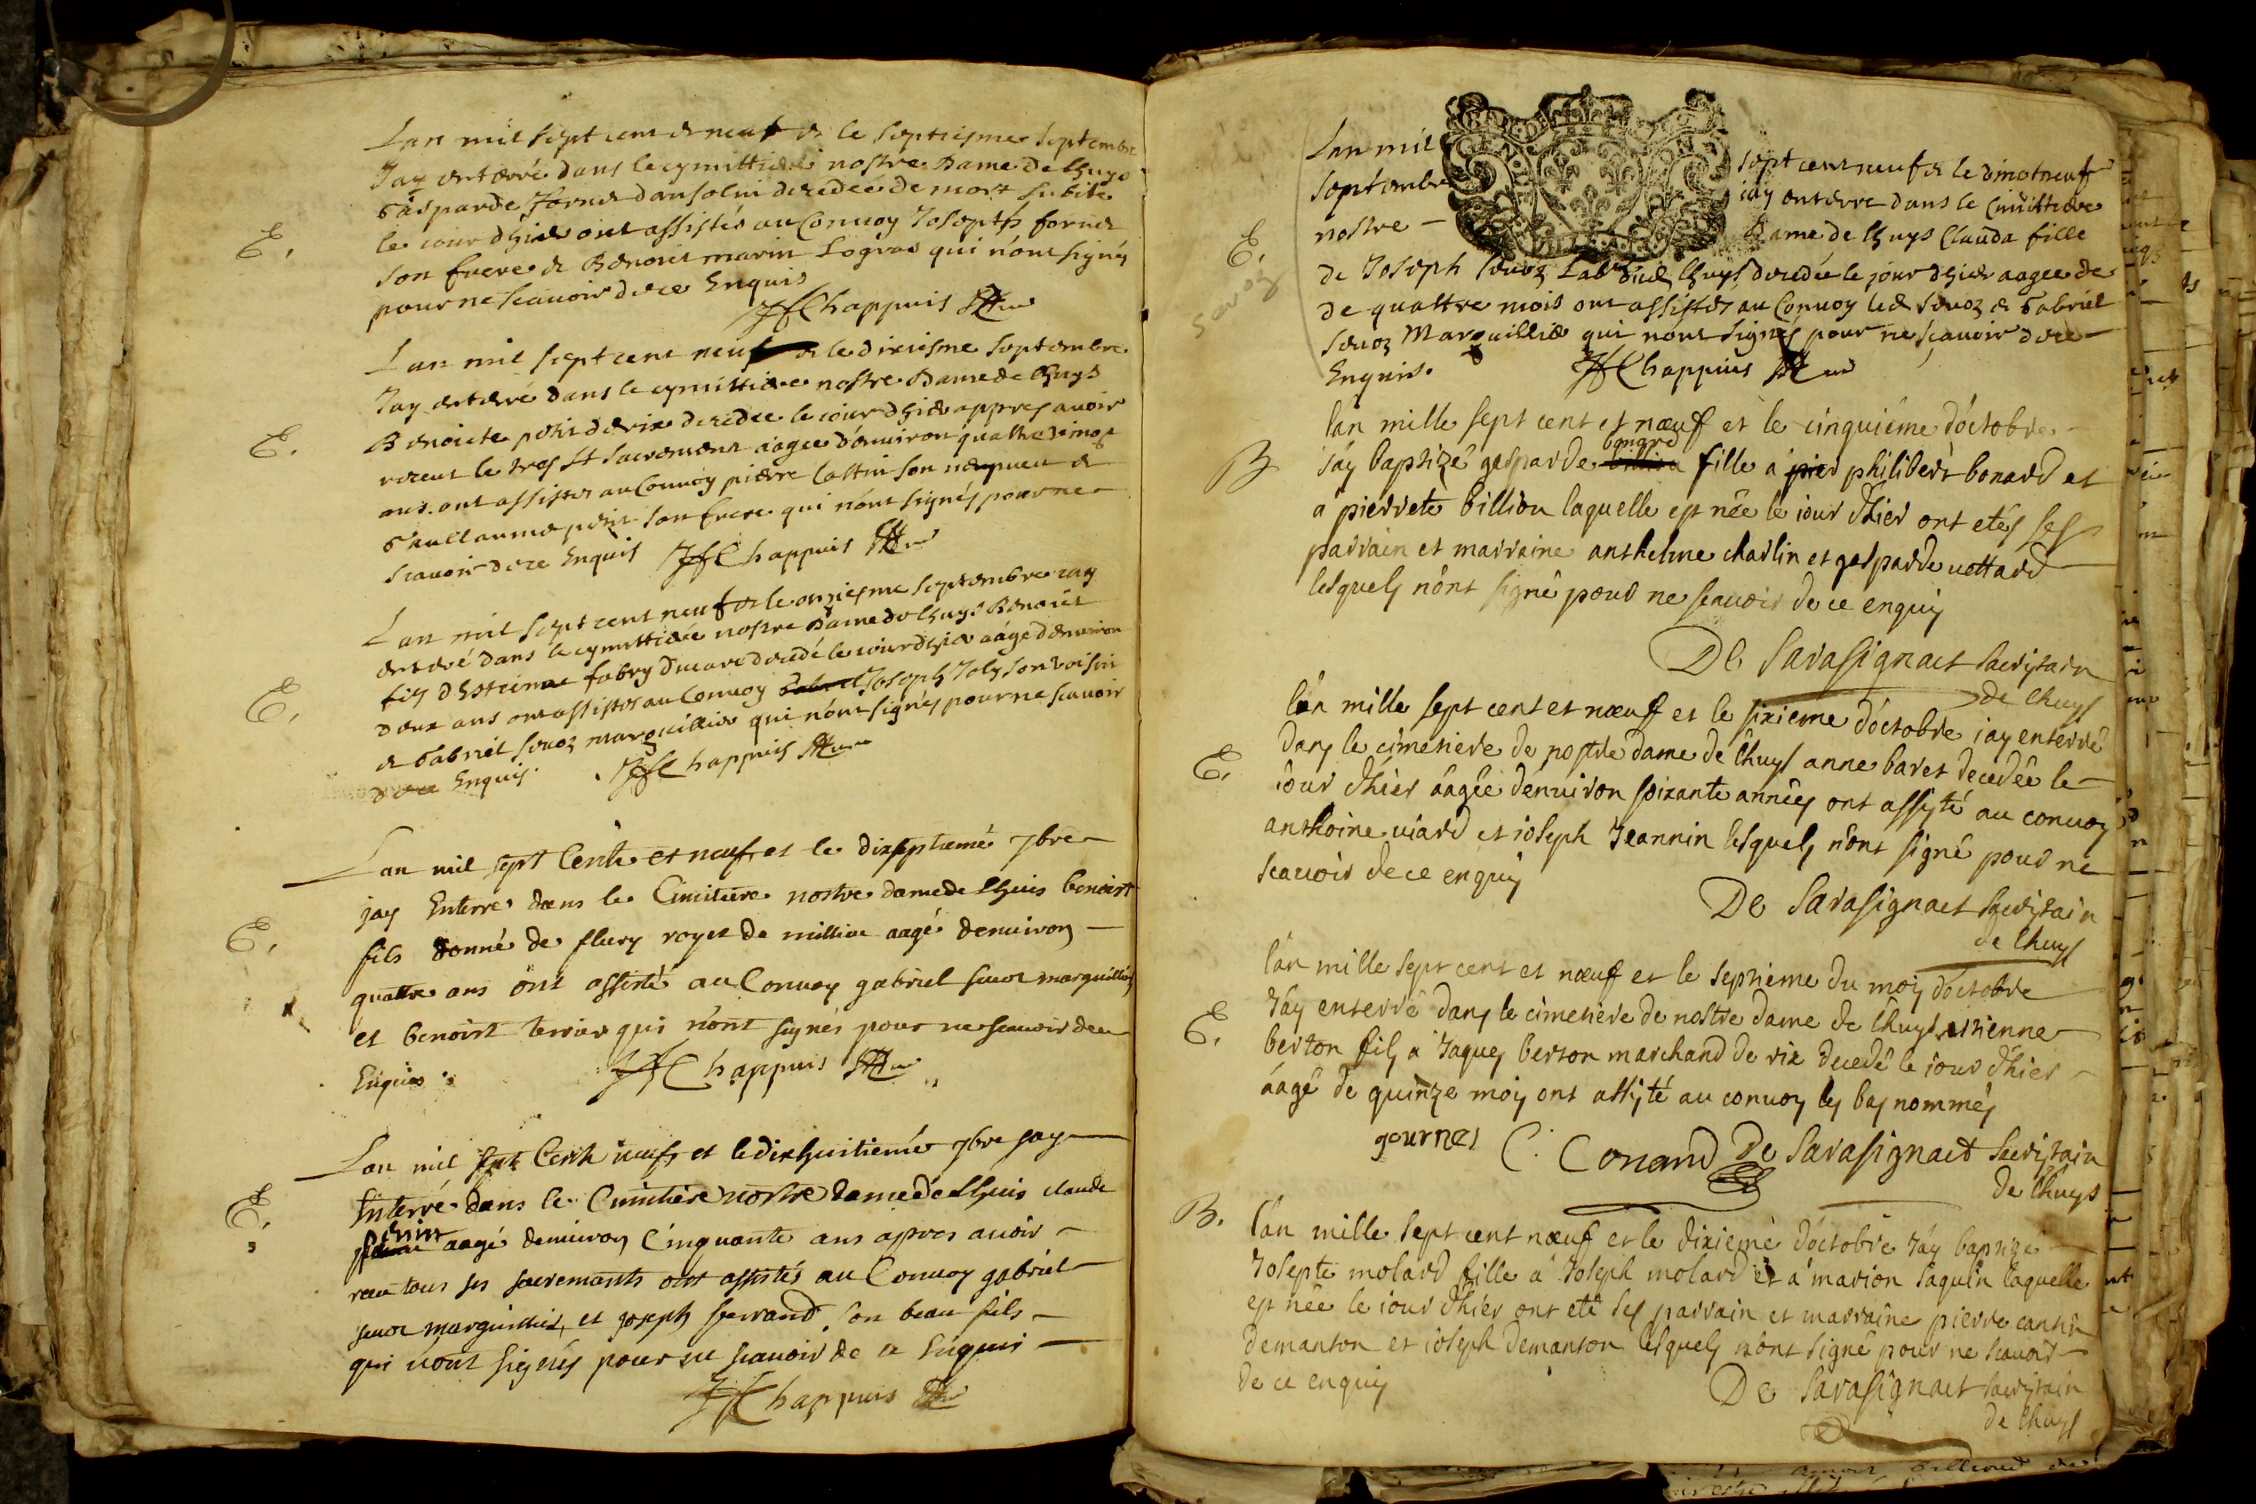 Lan mil sept cent et neuf et le septiesme septembre
Jay enterré dans le cymittiere nostre Dame de Lhuys
Gasparde Fornet dansolin decedeé de mort subite
le iour dhier ont assistés au Convoy Joseph fornet
E.
son frere et Benoict marin Logras qui n'ont signés
pour ne scauoir de ce Enquis
JfChappuis
Lan mil sept cent neuf et le dixiesme septembre
Jay enterré dans le cymittiere nostre Dame de Lhuys
Benoicte petit de rix decedee le iour dhier appres auoir
E.
receut le tres St sacrement aagee d'enuiron quattre vingt
ans ont assistes au Convoy pierre Cattin son nepueu et
Guillaume petit son frere qui n'ont signés pour ne
scauoir de ce Enquis JfChappuis
Lan mil sept cent neuf et le onziesme septembre iay
enterré dans le cymittiere nostre Dame de Lhuys Benoict
fils d'Estienne fabry decedé le iour dhier aagé d'enuiron
E.
deux ans ont assistes au Convoy Gabriel Joseph Joly son voisin
et Gabriel seuoz marguillier qui n'ont signés pour ne scauoir
de ce Enquis. JfChappuis
Lan mil sept Cents et neuf et le dixseptiemé 7bre
jay Enterre dans le Cimitiere nostre dame de Lhuis benoist
E.
fils donné de fleury royet de millieu aagé denuiron
quattre ans ont assisté au Convoy gabriel seuoz marguillier
et benoist terrier qui n'ont signés pour ne scauoir de ce
Enquis. JfChappuis
Lan mil sept Cents neuf et le dixhuitiemé 7bre jay
E.
Enterré dans le Cimitiere nostre dame de Lhuis claude
aagé denuiron Cinquante ans apres auoir
receu tous ses sacremants ont assistés au Convoy gabriel
seuoz marguillier, et joseph ferrand son beau fils
qui n'ont signés pour ne scauoir de ce Enquis
JfChappuis
Lan mil sept cent neuf et le dixnotneuf
septembre iay enterre dans le Cimittiere
E.
nostre Dame de Lhuys Clauda fille
de Joseph seuoz Labr dud Lhuys decedee le jour dhier aagee de
savoz
de quattre mois ont assistes au Convoy led seuoz et Gabriel
seuoz Marguillier qui n'ont signés pour ne scauoir de ce
Enquis. JfChappuis
lan mille sept cent et nœuf et le cinquiéme d'octobre
bonard
B
jáy baptizé gasparde billion fille a pier philibert bonard et
a pierrete billion laquelle est née le iour d'hier ont etés ses
parrain et marraine anthelme charlin et gasparde uottard
lesquels n'ont signé pour ne scauoir de ce enquis
De Sarasignact sacristain
de lhuys
lán mille sept cent et nœuf et le sixieme d'octobre jay enterré
E.
dans le cimetiere de nostre dame de lhuys anne baret decedée le
iour d'hier áagée d'enuiron soixante années ont assisté au conuoy
anthoine uiard et ioseph Jeannin lesquels n'ont signé pour ne
scauoir de ce enquis
De Sarasignact sacristain
de lhuys
lán mille sept cent et nœuf et le septieme du mois d'octobre
E.
Jáy enterré dans le cimetiere de nostre dame de lhuys etienne
berton fils a Jaques berton marchand de rix decedé le iour d'hier
áagé de quinze mois ont assisté au conuoy les bas nommés
gournet C. Conand De Sarasignact sacristain
de lhuys
B.
lán mille sept cent nœuf et le dixiemè d'octobre Jáy baptizé
Josepte molard fille a Joseph molard et a marion Jaquin laquelle
est née le iour d'hier ont eté ses parrain et marraine pierre cantin
demanton et ioseph demanton lesquels n'ont signé pour ne scauoir
de ce enquis De Sarasignact sacristain
de lhuys